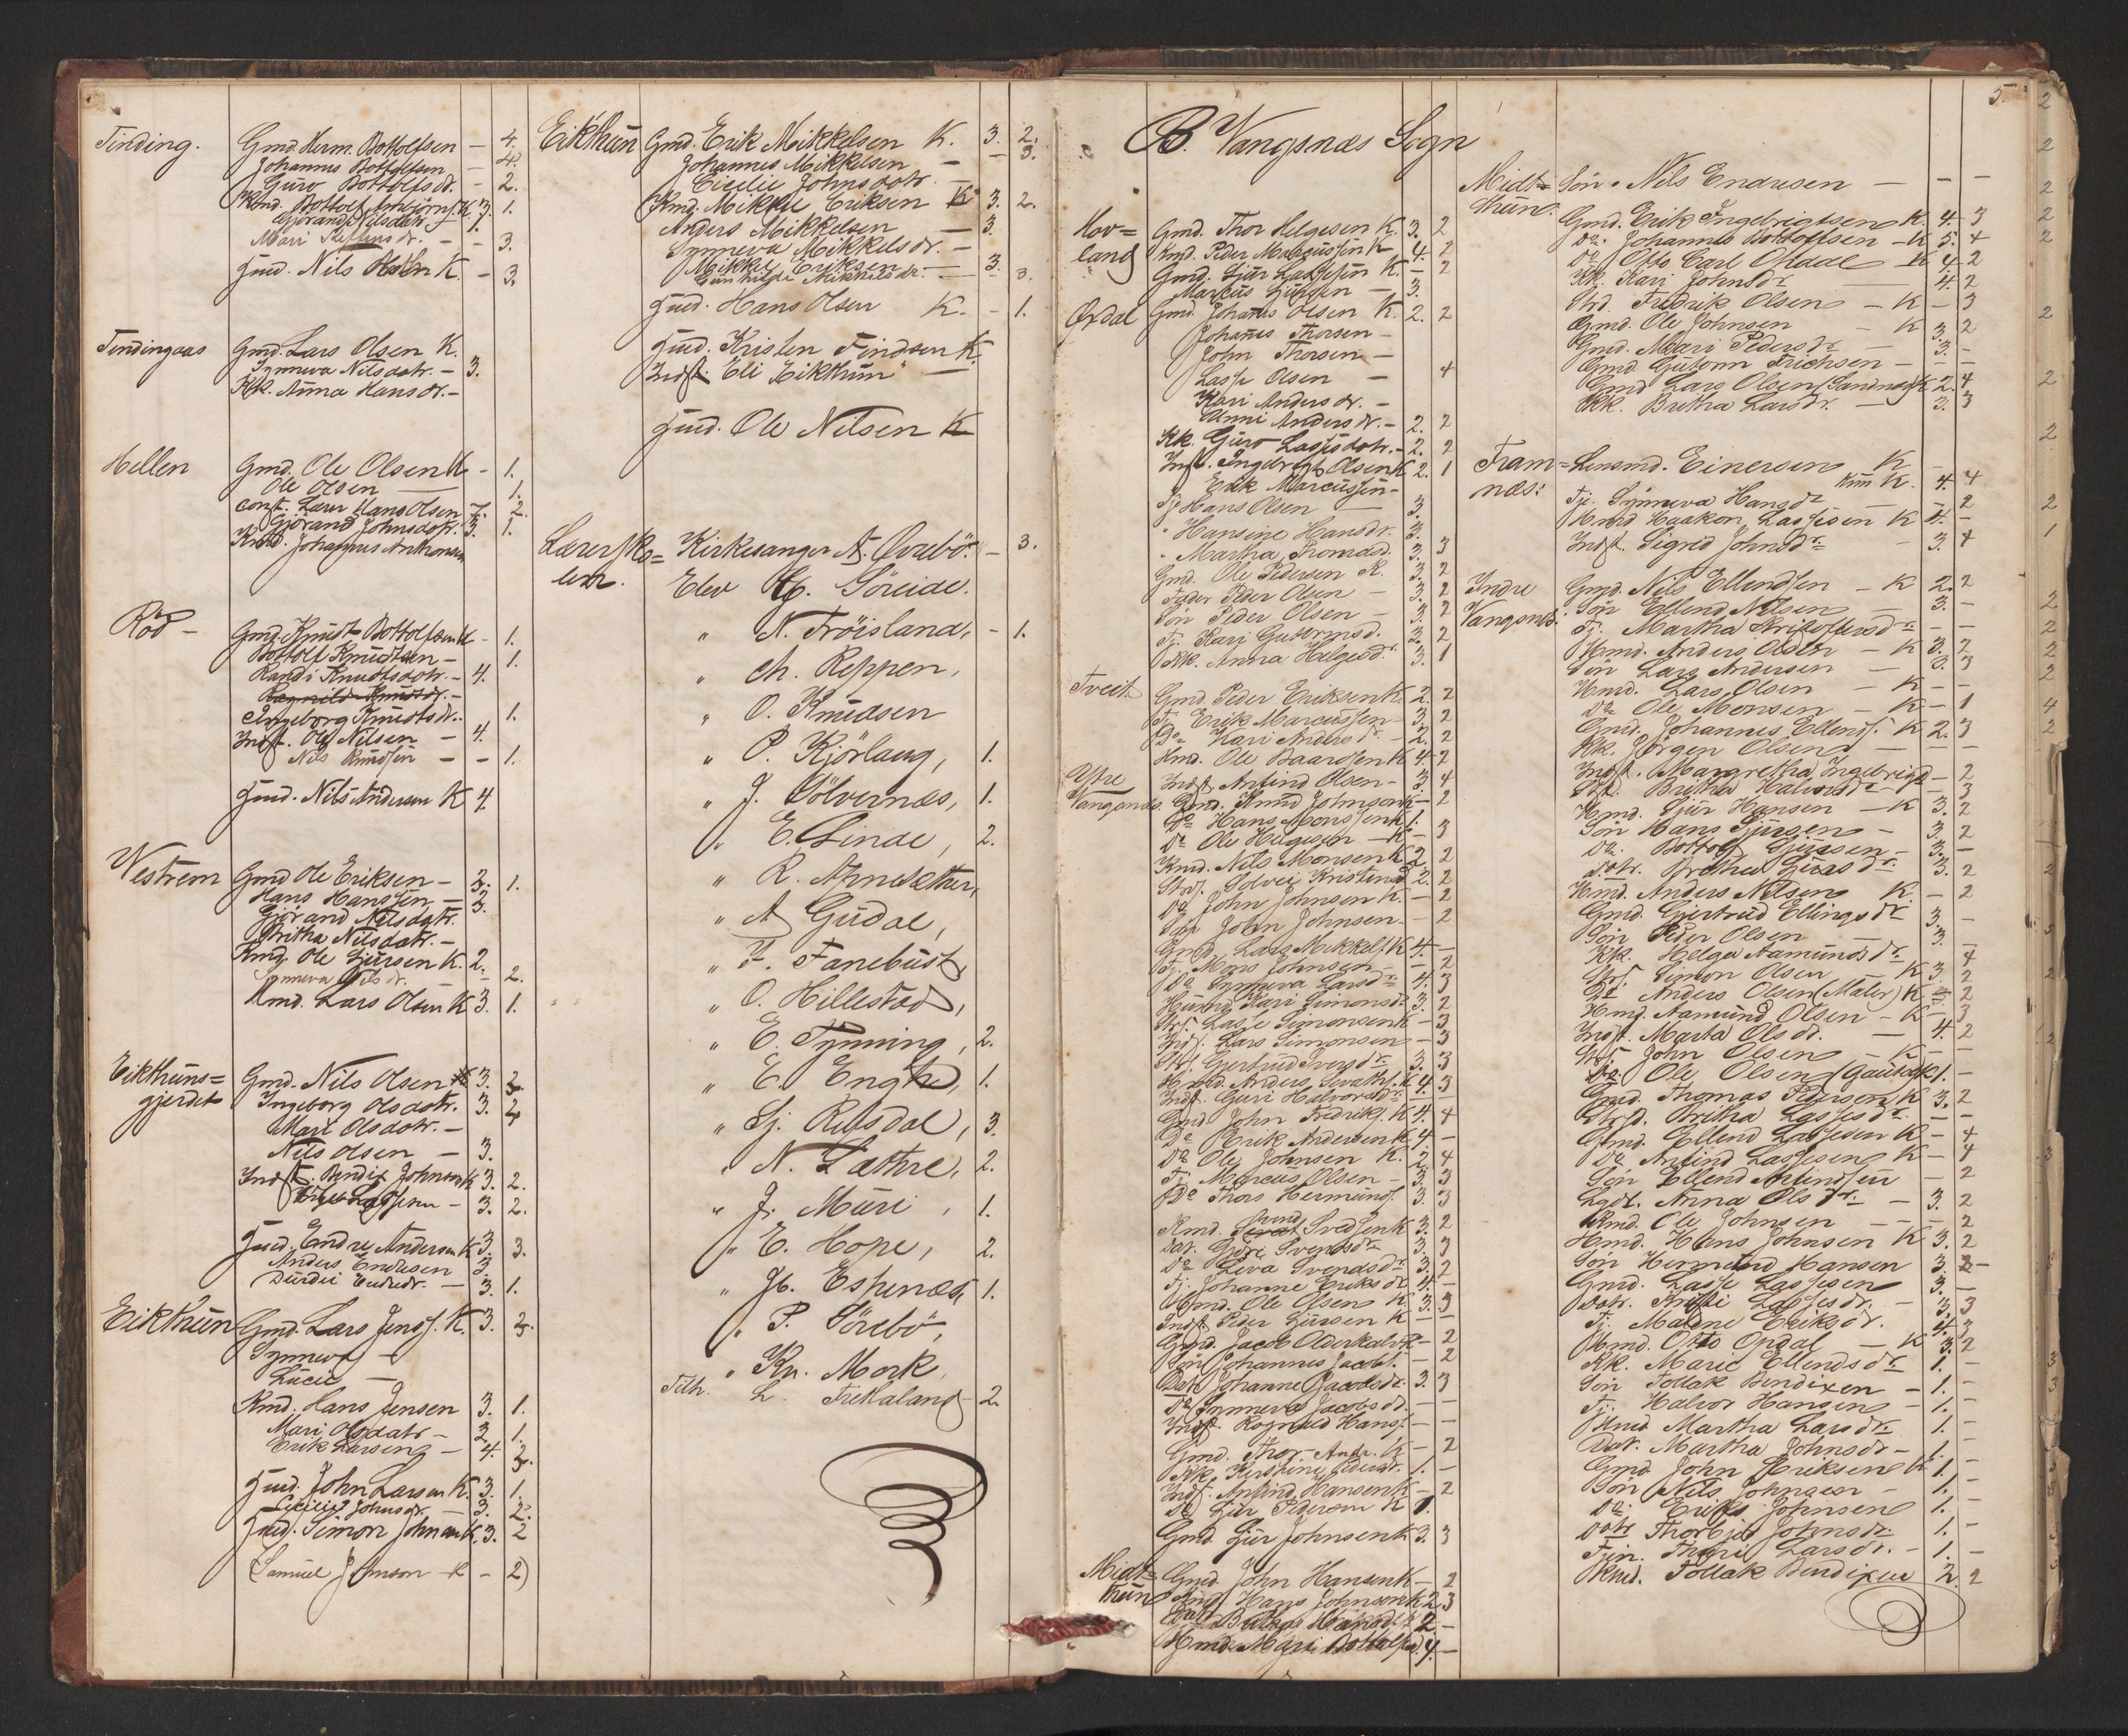 Tinding. Gmd. Herm. Bottolfsen — 4.
Johannes Bottolfsen — 4.
Guro Bottolfsdr. - 2.
Kmd. Bottolf K. 3. 1.
Gjörand Nilsdatr. 1.
Mari - - 3.
Gmd. Nils K. - 3.
Tindingaas Gmd. Lars Olsen K.
Synneva Nilsdatr. - 3.
Kk. Anna Hansdr. -
Hellen Gmd. Ole Olsen K - 1.
Ole Olsen — 1.
Const. Lærer Hans Olsen 7. 2.
Gjörand Johnsdatr. 3. 1.
Kmd. Johannes
Röd - Gmd. Knudt Bottolfsen K - 1.
Bottolf Knudtsen - 1.
Randi Knudtsdatr. - 4.
Ragnilde Knudtdr. -
Ingeborg Knudtsdr. 1.
Indst. Ole Nilsen - 4.
Nils Knudsen - - 1.
Gmd. Nils Andersen K 4.
Vestrem Gmd. Ole Eriksen - 3. 1.
Hans Hanssen - 3.
Gjörand Nilsdatr.
Britha Nilsdatr. -
Kmd. Ole Sjursen K. 2.
Synneva Nilsdr. - 2.
Kmd. Lars Olsen K 3. 1.
Eikthuns= Gmd. Nils Olsen K 3. 2
gjerdet Ingeborg Olsdatr. 3. 4
Mari Olsdatr. -
Nils Olsen - 3.
Indst. Bendix Johnsen K 3. 2.
- 3. 2.
Gmd. Endre Andersen K 3. 3.
Anders Endresen 3.
Durdei Endredr. - 3. 1.
Eikthun Gmd. Lars Jenss. K. 3. 3.
Synneva -
Lucie —
Kmd. Hans Jensen 3. 1.
Mari Olsdatr - 3. 1.
Erik Larsen - 4. 3.
Gmd. John Larsen K. 3. 1.
Cecilie Johnsdr. 3. 2.
Gmd. Simon Johnsen K. 3. 2
(Samuel Johnson - 2)
Eikthun Gmd. Erik Mikkelsen K. 3. 2.
Johannes Mikkelsen - - 3.
Cicilie Johnsdotr. -
Kmd. Mikkel Eriksen K 3. 2.
Anders Mikkelsen — 3.
Synneva Mikkelsdr. -
Mikkel Eriksen — 3.
Gunhilde Mikkelsdr. — 3.
Gmd. Hans Olsen K. - 1.
Gmd. Kristen Findsen K.
Indst. Eli Eikthun —
Gmd. Ole Nilsen K
Lærersko= Kirkesanger A. Övrebö. - 3.
len. Elev G. Söreide.
" N. Fröisland, - 1.
" Ch. Reppen,
" O. Knudsen
" P. Kjörlaug, 1.
" J. Sölvernæs, 1.
" E. Linde, 2.
" R. Arnesæther,
" A. Gudal,
" F. Fanebust,
" O. Hillestad,
" E. Tynning, 2.
" E. Enghe, 1.
" Sj. Rusdal, 3.
" N. Læthre, 2.
" J. Muri, 1.
" E. Hope, 2.
" Jb. Espenæs, 1.
" P. Sörebö,
" Kn. Mork,
Tilh. L. Frekaland 2.
5.
B. Vangsnæs Sogn
Hov= Gmd. Thor Helgesen K. 3. 2
land Kmd. Peder Marcussen K - 4. 2
Gmd. Sjur Lassesen K. - 2
Marcus Sjursen - 3.
Ordal Gmd. Johanes Olsen K. 2. 2
Johanes Thorsen -
John Thorsen -
Lasse Olsen - 4
Kari Andersdr. -
Unni Andersdr. - 2. 2
Kk. Guro Lassesdotr. - 2. 2
Indst. Ingebrigt Olsen K 2. 1
Erik Marcussen -
Tj Hans Olsen - 3.
" Hansine Hansdr. 3.
" Martha 3. 3
Gmd. Ole Pedersen K. 3. 2
Fader Peder Olsen - 3. 2
Sön Peder Olsen - 3. 2
Tj. Kari Guttormsd. 3. 2
Kk. Anna Helgesdr. 3. 1
Tveit Gmd. Peder Eriksen K. 2. 2
Tj. Erik Marcussen - 3. 2
Do Kari Andersdr. - 2. 2
Hmd. Ole Baardsen K 4. 2
Ytre Indst Arfind Olsen - 3. 4
Vangsnæs Gmd. Knud Johnsen K - 2
Do Hans Monsen K 1.
Do Ole Helgesen - K - 3
Kmd. Nils Monsen K 2. 2
Solvei 2. 2
Do John Johnsen K. - 2
Sön John Johnsen - - 2
Gmd. Lars Mikkels. K 4. -
Tj. Mons Johnsen - - 2
Do Synneva Larsd. 4. 3
Kari Simonsd. 3. 2
Lasse Simonsen K - 3
Indst. Lars Simonsen - 3
Gjertrud Iversdr. 3. 3
Hmd. Anders K. 4. 3
Indst. Guri Halvorsdr. - -
Gmd. John Fredriks. K 4. 4
Do Erik Andersen K. 4. -
Do Ole Johnsen K. 2. 4
Tj. Marcus Olsen - 3. 3
Do Thors Hermuns. 3. 3
Kmd. Svend Svedsen K 3. 2
Dat. Gjöre Svendsdr. 3. 3
Do Eeva Svendsdr. 3. 2
Tj. Johanne Eriksdr. 4. -
Gmd. Ole Olsen K. 3. 3
Indst Peder Sjursen K - -
Gmd. Jacob - 2
Sön Johannes Jacobs. - 2
Dat. Johanne Jacobsdr. 3. 3
Do Synneva Jacobsd. - -
Indst. Rognald Hanss. - -
Gmd. Thor Andr. K - 2
Kk. Kirstine 1. -
Indst. Arfind Hansen K - 2
Do Sjur Pedersen K 1.
Gmd. Sjur Johnsen K 3. 3
Midt= Gmd. John Hansen K - 2
thun Hans Johnsen K 2. 3
Britha 2. -
Hmd. Mari Bottolfsd. 4. -
Midt= Sön. Nils Endresen - - -
thun. Gmd. Erik Ingebrigtsen K 4. 3
Do. Johannes Bottolfsen - K 5. 4
Do Otto Carl Opdal - K 4. 2
Kk. Kari Johnsdr 4. 2
Fredrik Olsen - K - 3
Gmd. Ole Johnsen - K 3. 2
Gmd. Mari Pedersdr - 3. -
Gmd. Guttorm Erichsen - - -
Gmd Lars Olsen (Sandnæs) K 2. 4
Kk. Britha Larsdr. - 3. 3
Fram= Lensmd. Einersen K -
næs: K. 4. 4
Tje. Synneva Hansdr - 2
Kmd Haakon Lassesen K 4. -
Indst. Sigrid Johnsdr - 3. 4
Indre Gmd. Nils Ellendsen - K 2. 2
Vangsnæs. Sön Ellend Nilsen - 3. -
Tj. Martha Kristoffersdr - -
Hmd. Anders Olsen - K 3. 2
Sön Lars Andersen - 3. 3
Hmd. Lars Olsen - K - -
Do Ole Monsen - K - 1
Gmd. Johannes Ellends. K 2. 3
Kk. Jörgen Olsen - - -
Indst. Margretha Ingebrigd - 2
Britha Halvorsdr - 3
Hmd. Sjur Hansen - K 3. 2
Sön Hans Sjursen - 3. 2
Do. Bottolf Sjursen - 3. -
Dotr. Brithe Sjursdr. 3. 2
Hmd. Anders Nilsen K. - 2
Gmd. Gjertrud Ellingsdr 3. -
Sön Peder Olsen 3.
Kk. Helga Aamundsdr - 4
Simon Olsen - K 3. 2
Do Anders Olsen (Maler) K 2. 2
Hmd. Aamund Olsen - K - 3
Indst. Marta Olsd. - 4. 2
John Olsen - K - -
Do Ole Olsen K 1. -
Gmd. Thomas Pedersen K 3. 2
Britha Lassesdr. - -
Gmd. Ellend Lassesen K - 4
Do Arfind Lassesen K - 4
Sön Ellend Arfindsen - 2
Lgdl. Anna Olsdr. - 3. 2
Kmd. Ole Johnsen - - - 2
Hmd. Hans Johnsen K 3. 2
Sön Hermund Hansen 3. 2 -
Gmd. Lasse Lassesen 3. -
Dotr. Kristi Lassesdr. - 3. 3
Tj. Malene Eriksdr. 4. 3
Hmd. Otto Opdal - K 3. 2
Kk. Marie Ellendsdr. 1. -
Sön Tollak Bendixen - 1. -
Tj. Halvor Hansen - 1. -
Hmd Martha Larsdr 1. -
Dat. Martha Johnsdr - 1. -
Gmd John Eriksen K 1. -
Sön Nils Johnsen - 1. -
Do. Eriks Johnsen 1. -
Dotr Thorbjør Johnsdr. 1. -
Tjen. Thuri Larsdr. - 1. -
Kmd. Tollak Bendixen 2. 2